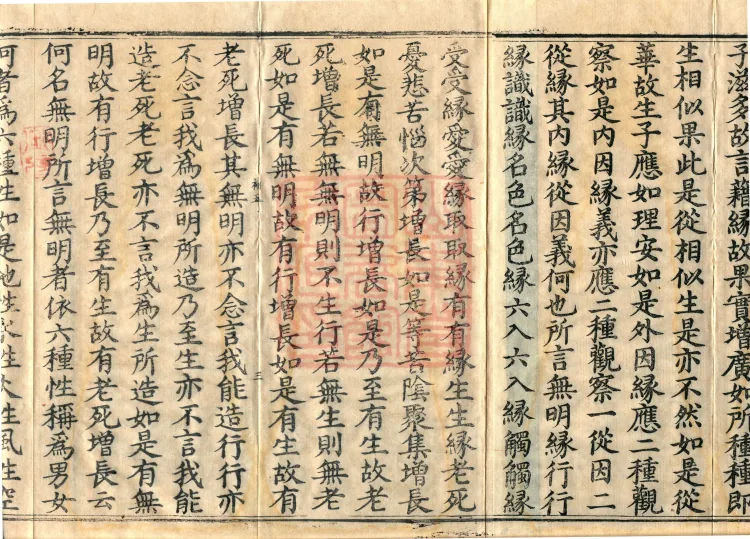 子滋多故言藉緣故果實增廣如所種種即
生相似果此是從相似生是亦不然如是從
華故生子應如理安如是外因緣應二種觀
察如是内因緣義亦應二種觀察一從因二
從緣其内緣從因義何也所言無明緣行行
緣識識緣名色名色緣六入六入緣觸觸緣
受受緣愛愛緣取取緣有有緣生生緣老死
憂悲苦惱次第增長如是等苦陰聚集增長
如是有無明故行增長如是乃至有生故老
死增長若無無明則不生行若無生則無老
死如是有無明故有行增長如是有生故有
三
老死增長其無明亦不念言我能造行行亦
不念言我為無明所造乃至生亦不言我能
造老死老死亦不言我為生所造如是有無
明故有行增長乃至有生故有老死增長云
何名無明所言無明者依六種性稱為男女
何者為六種生如是地生水生火生風生空